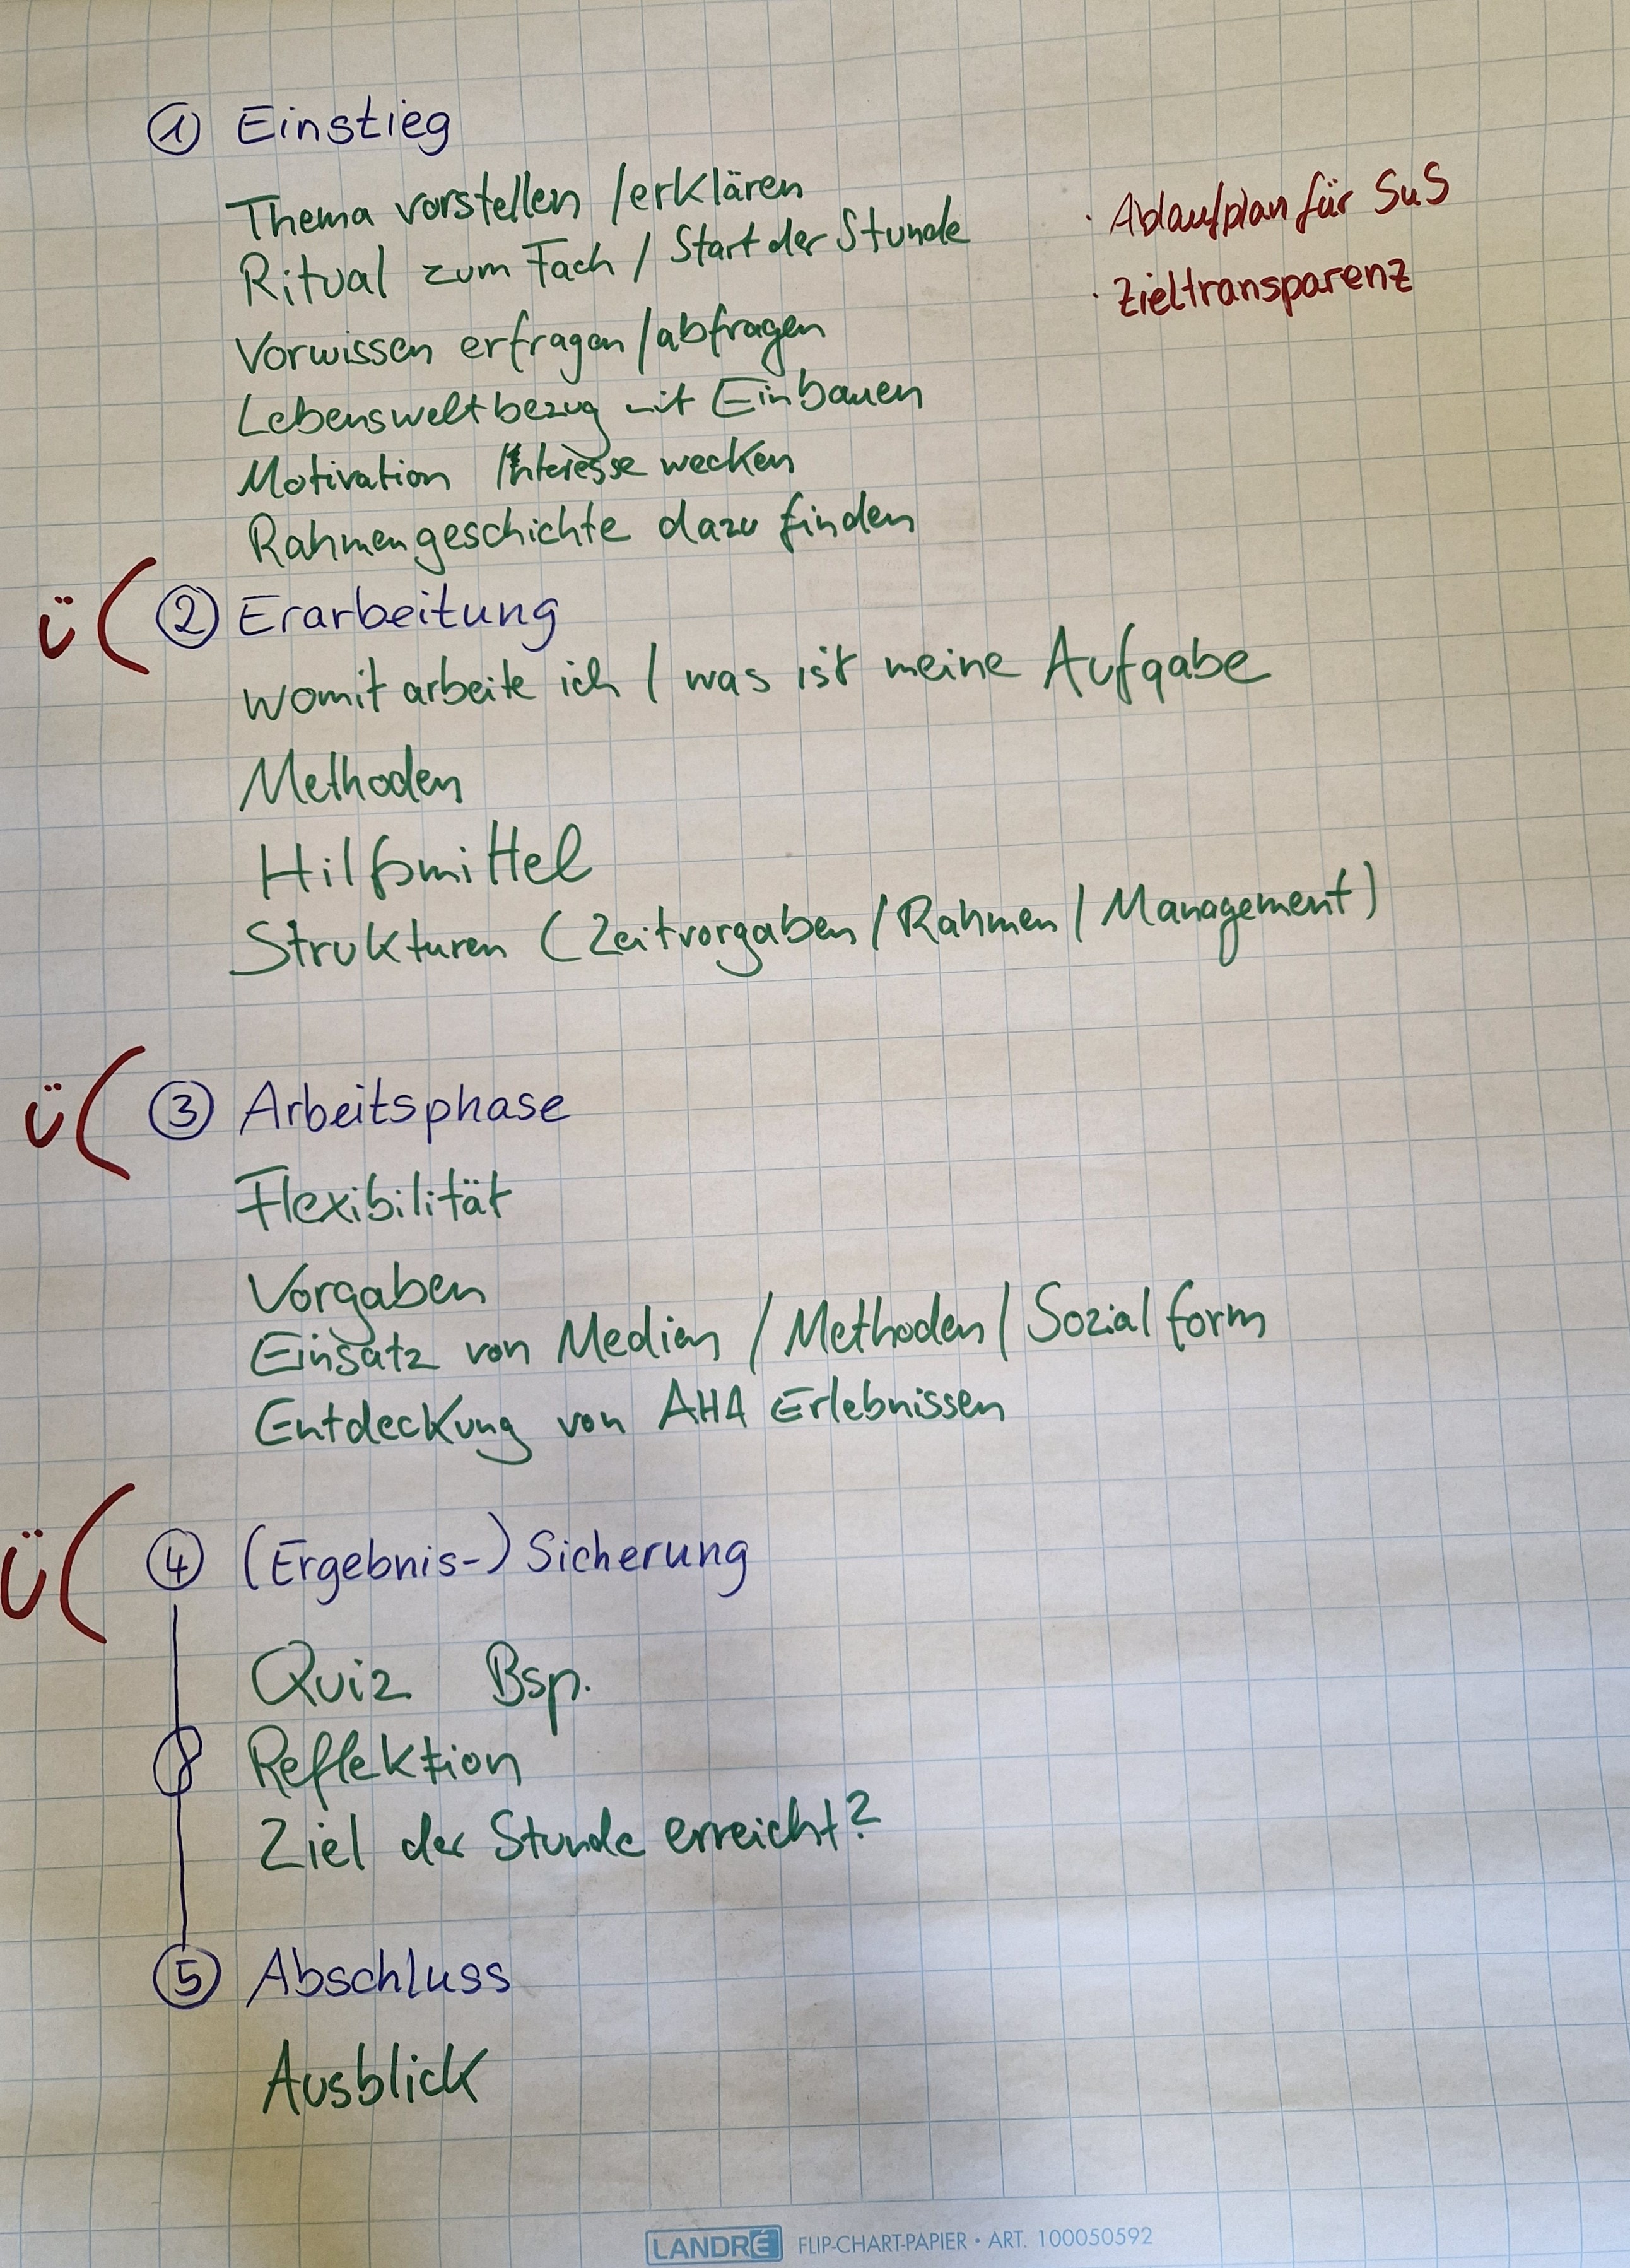 ① Einstieg
Thema vorstellen / erklären
Ritual zum Fach / Start der Stunde
· Ablaufplan für SuS
· Zieltransparenz
Vorwissen erfragen / abfragen
Lebensweltbezug mit Einbauen
Motivation Interesse wecken
Rahmengeschichte dazu finden
Ü ( ② Erarbeitung
womit arbeite ich / was ist meine Aufgabe
Methoden
Hilfsmittel
Strukturen (Zeitvorgaben / Rahmen / Management)
Ü ( ③ Arbeitsphase
Flexibilität
Vorgaben
Einsatz von Medien / Methoden / Sozialform
Entdeckung von AHA Erlebnissen
Ü ( ④ (Ergebnis-) Sicherung
Quiz Bsp.
Reflektion
Ziel der Stunde erreicht?
⑤ Abschluss
Ausblick
LANDRÉ FLIP-CHART-PAPIER • ART. 100050592